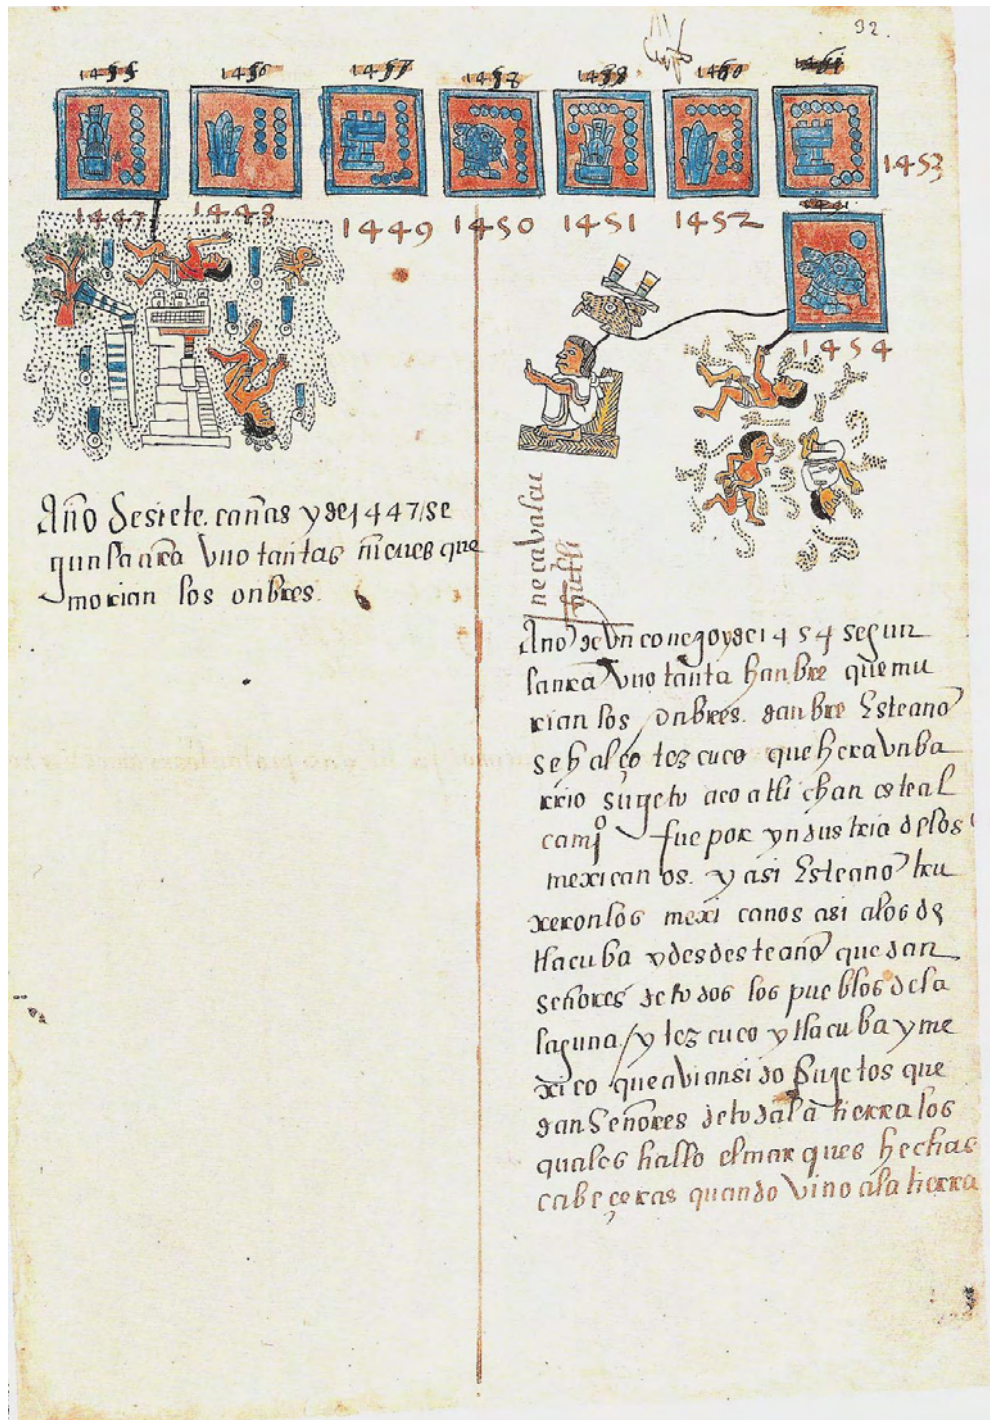 32.
1447
1448
1449
1450
1451
1452
1453
1454
Año de siete. cañas y de 1447 / se
gun la nra vuo tantas nieues que
morian los onbres.
neçavalcu
Año de vn conejo y de 1454 segun
la nra vuo tanta hanbre que mu
rian los onbres. danbre Este año
se halço tezcuco que hera vn ba
rrio sugeto a coatlichan esteal
camjo fue por yndustria de los
mexicanos. y asi Este año tru
xeron los mexicanos asi a los de
tlacuba y desdeste año quedan
señores de todos los pueblos de la
laguna / y tezcuco y tlacuba y me
xico que avian sido sugetos que
dan Señores de toda la tierra los
quales hallo el marques hechas
cabeçeras quando vino a la tierra